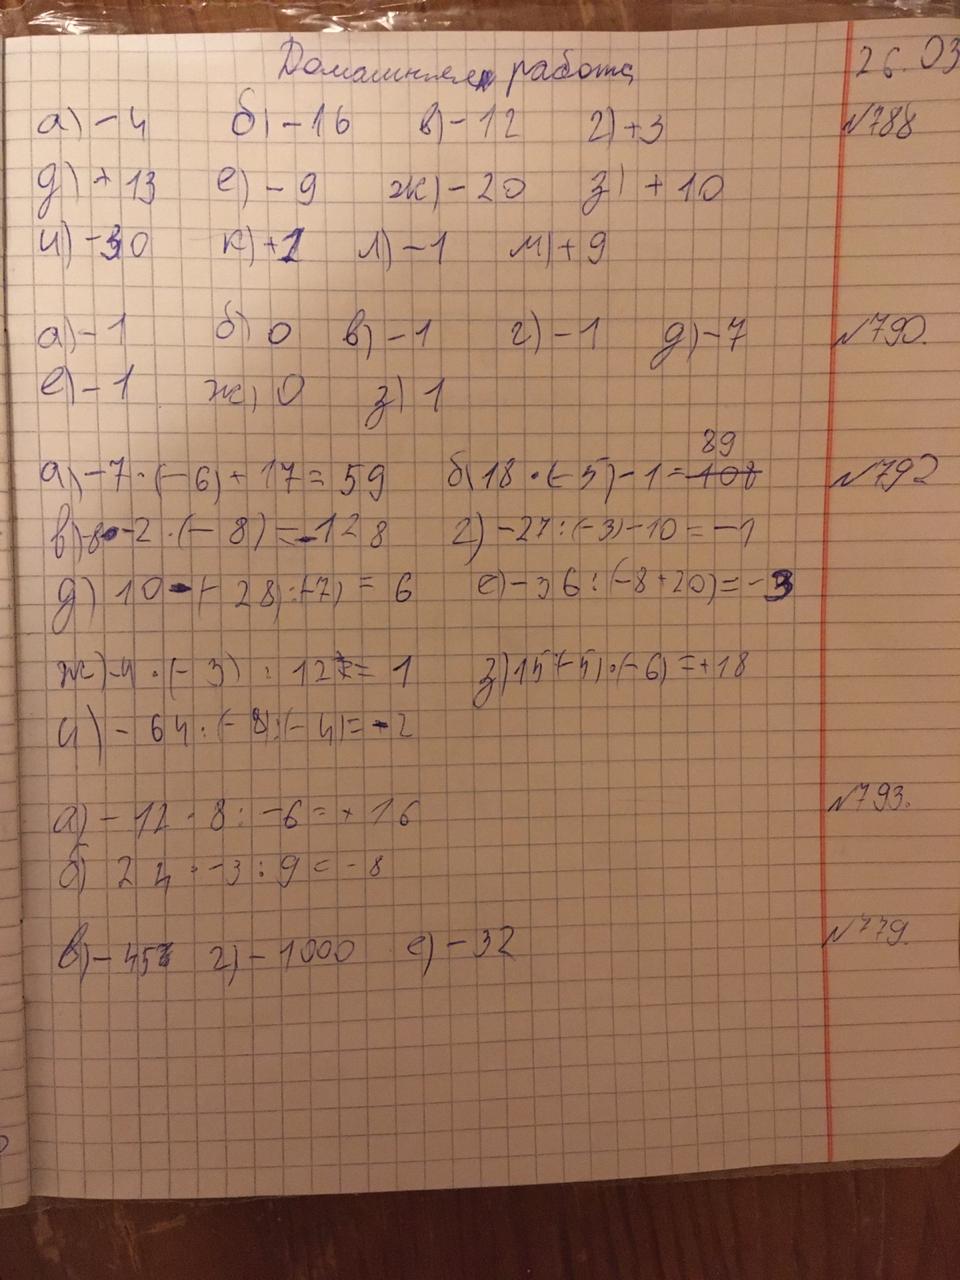 Домашняя работа 26.03
а) -4 б) -16 в) -12 г) +3 №788
д) +13 е) -9 ж) -20 з) +10
и) -30 к) +1 л) -1 м) +9
а) -1 б) 0 в) -1 г) -1 д) -7 №790.
е) -1 ж) 0 з) 1
89
а) -7 · (-6) + 17 = 59 б) 18 · (-5) - 1 = 108 №792
в) -8 · -2 · (-8) = -128 г) -27 : (-3) - 10 = -1
д) 10 - (-28) : (-7) = 6 е) -36 : (-8 + 20) = -3
ж) -4 · (-3) : 12 = 1 з) 15 : (-5) · (-6) = +18
и) -64 : (-8) : (-4) = -2
№793.
а) -12 · 8 : -6 = +16
б) 24 · -3 : 9 = -8
в) -45 г) -1000 е) -32 №779.